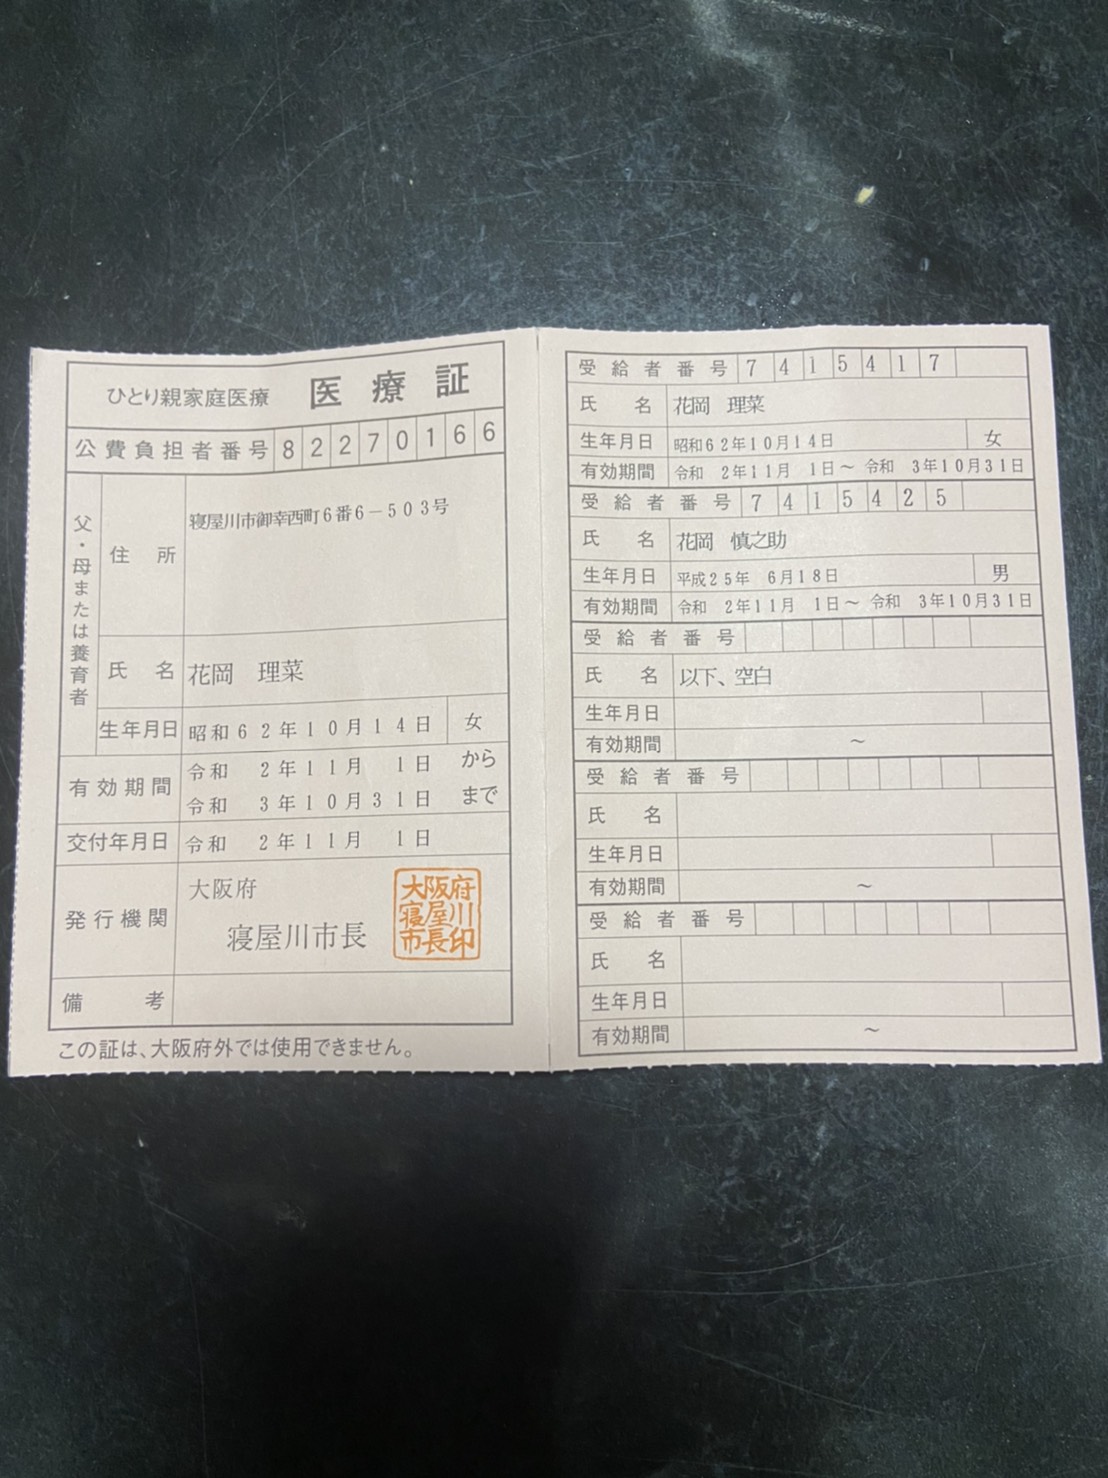 ひとり親家庭医療 医療証
公費負担者番号 82270166
父・母または養育者
住所 寝屋川市御幸西町6番6-503号
氏名 花岡 理菜
生年月日 昭和62年10月14日 女
有効期間 令和 2年11月 1日 から
令和 3年10月31日 まで
交付年月日 令和 2年11月 1日
発行機関 大阪府
寝屋川市長
大阪府
寝屋川
市長印
備考
この証は、大阪府外では使用できません。
受給者番号 7415417
氏名 花岡 理菜
生年月日 昭和62年10月14日 女
有効期間 令和 2年11月 1日~ 令和 3年10月31日
受給者番号 7415425
氏名 花岡 慎之助
生年月日 平成25年 6月18日 男
有効期間 令和 2年11月 1日~ 令和 3年10月31日
受給者番号
氏名 以下、空白
生年月日
有効期間 ~
受給者番号
氏名
生年月日
有効期間 ~
受給者番号
氏名
生年月日
有効期間 ~